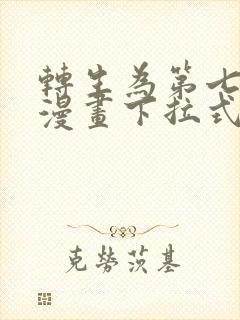 轉生為第七
漫畫下拉式
克勞茨基